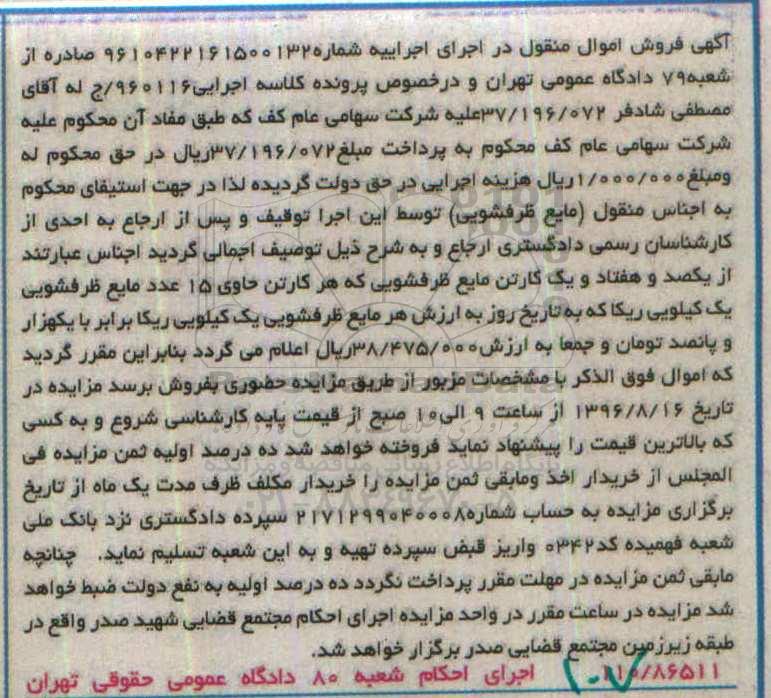 آگهی فروش اموال منقول در اجرای اجراییه شماره۹۶۱۰۴۲۲۱۶۱۵۰۰۱۳۲ صادره از
شعبه۷۹ دادگاه عمومی تهران و درخصوص پرونده کلاسه اجرایی۹۶۰۱۱۶/ج له آقای
مصطفی شادفر ۳۷/۱۹۶/۰۷۲علیه شرکت سهامی عام کف که طبق مفاد آن محکوم علیه
شرکت سهامی عام کف محکوم به پرداخت مبلغ۳۷/۱۹۶/۰۷۲ریال در حق محکوم له
ومبلغ۱/۰۰۰/۰۰۰ریال هزینه اجرایی در حق دولت گردیده لذا در جهت استیفای محکوم
به اجناس منقول (مایع ظرفشویی) توسط این اجرا توقیف و پس از ارجاع به احدی از
کارشناسان رسمی دادگستری ارجاع و به شرح ذیل توصیف اجمالی گردید اجناس عبارتند
از یکصد و هفتاد و یک کارتن مایع ظرفشویی که هر کارتن حاوی ۱۵ عدد مایع ظرفشویی
یک کیلویی ریکا که به تاریخ روز به ارزش هر مایع ظرفشویی یک کیلویی ریکا برابر با یکهزار
و پانصد تومان و جمعا به ارزش۳۸/۴۷۵/۰۰۰ریال اعلام می گردد بنابراین مقرر گردید
که اموال فوق الذکر با مشخصات مزبور از طریق مزایده حضوری بفروش برسد مزایده در
تاریخ ۱۳۹۶/۸/۱۶ از ساعت ۹ الی۱۰ صبح از قیمت پایه کارشناسی شروع و به کسی
که بالاترین قیمت را پیشنهاد نماید فروخته خواهد شد ده درصد اولیه ثمن مزایده فی
المجلس از خریدار اخذ ومابقی ثمن مزایده را خریدار مکلف ظرف مدت یک ماه از تاریخ
برگزاری مزایده به حساب شماره۲۱۷۱۲۹۹۰۴۰۰۰۸ سپرده دادگستری نزد بانک ملی
شعبه فهمیده کد۰۳۴۲ واریز قبض سپرده تهیه و به این شعبه تسلیم نماید. چنانچه
مابقی ثمن مزایده در مهلت مقرر پرداخت نگردد ده درصد اولیه به نفع دولت ضبط خواهد
شد مزایده در ساعت مقرر در واحد مزایده اجرای احکام مجتمع قضایی شهید صدر واقع در
طبقه زیرزمین مجتمع قضایی صدر برگزار خواهد شد.
۱۱۰/۸۶۵۱۱ اجرای احکام شعبه ۸۰ دادگاه عمومی حقوقی تهران